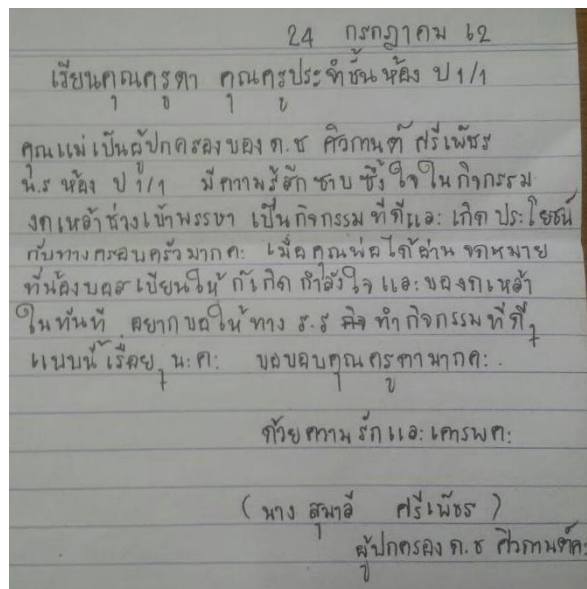 24 กรกฎาคม 62
เรียนคุณครูดา คุณครูประจำชั้นห้อง ป 1/1
คุณแม่เป็นผู้ปกครองของ ด.ช ศิวกานต์ ศรีเพ็ชร
น.ร ห้อง ป 1/1 มีความรู้สึกซาบซึ้งใจในกิจกรรม
งดเหล้าช่วงเข้าพรรษา เป็นกิจกรรมที่ดีและเกิดประโยชน์
กับทางครอบครัวมากคะ เมื่อคุณพ่อได้อ่าน จดหมาย
ที่น้องบอสเขียนให้ ก็เกิดกำลังใจและของดเหล้า
ในทันที อยากขอให้ทาง ร.ร ทำกิจกรรมที่ดีๆ
แบบนี้เรื่อยๆนะคะ ขอบอบคุณครูดามากคะ.
ด้วยความรักและเคารพคะ
( นาง สุมาลี ศรีเพ็ชร )
ผู้ปกครอง ด.ช ศิวกานต์คะ